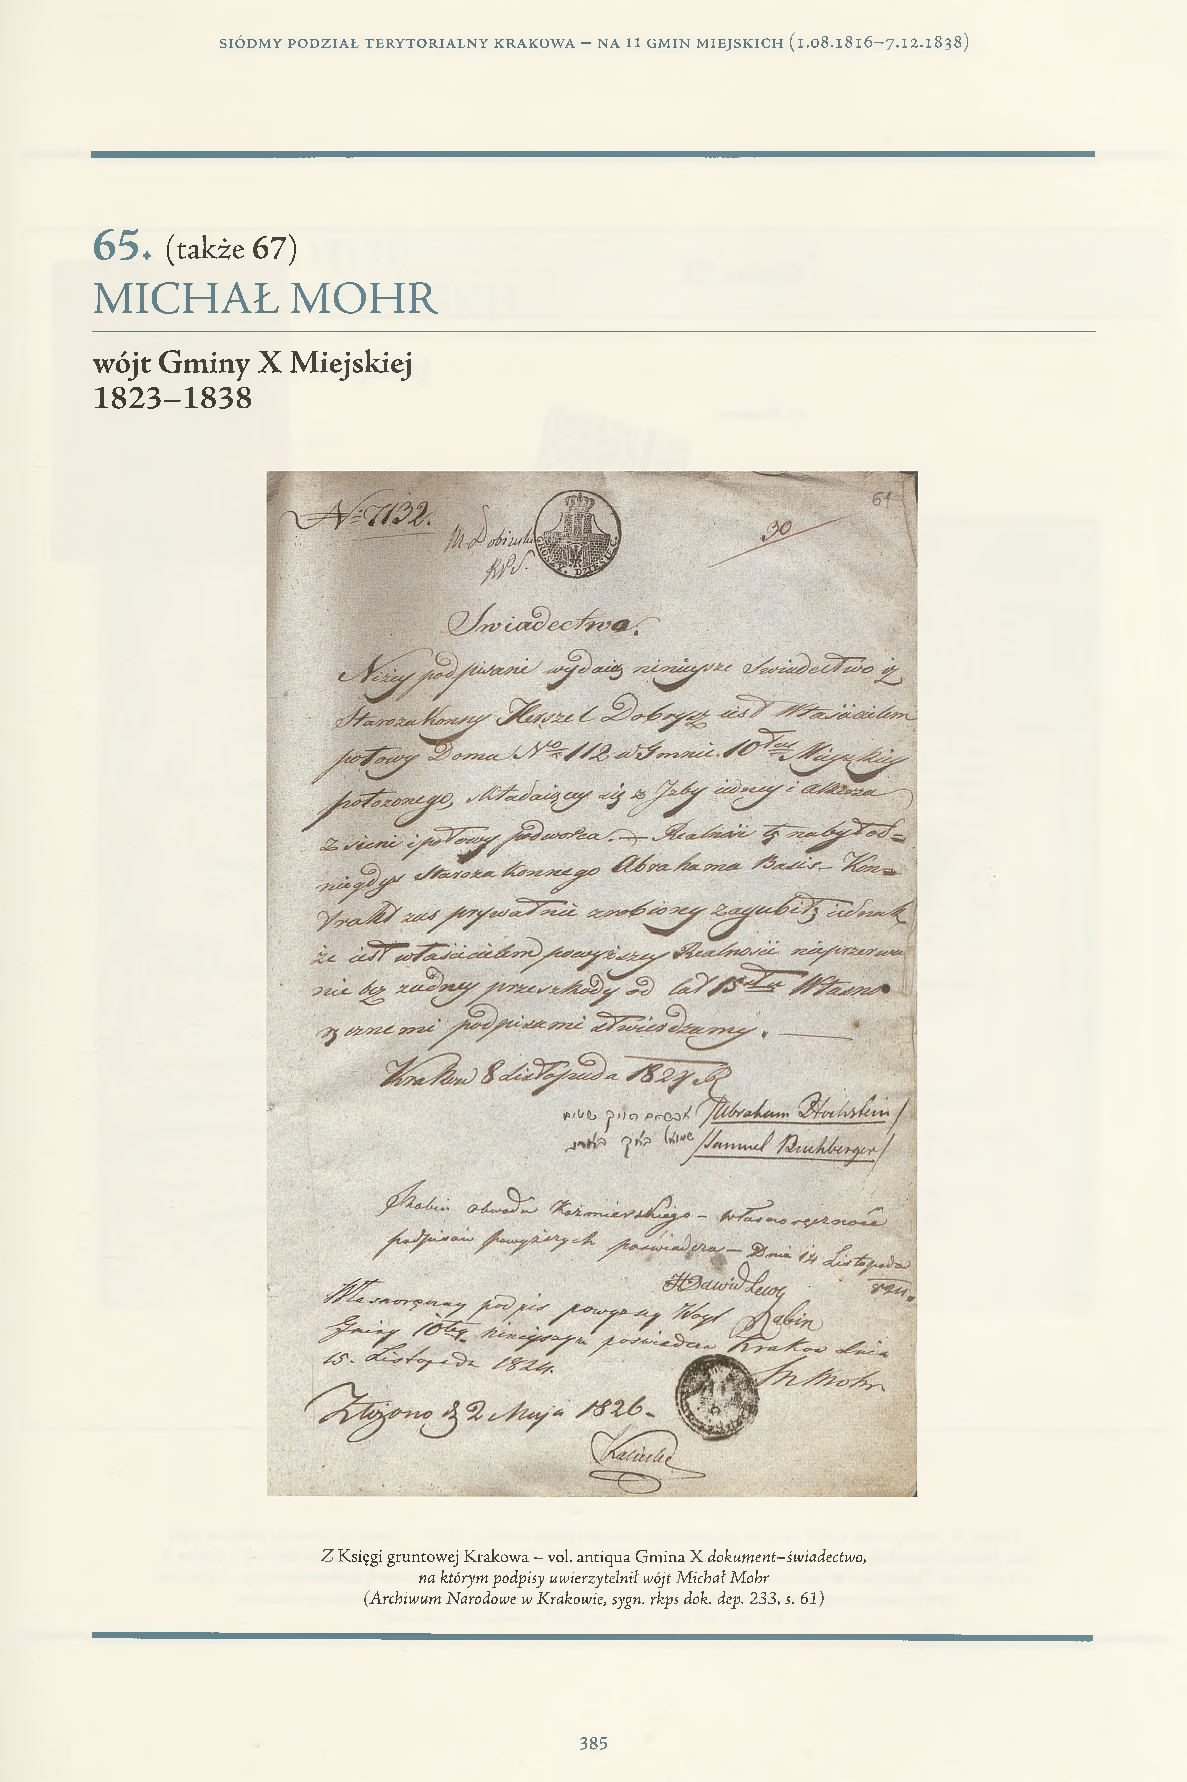 SIÓDMY PODZIAŁ TERYTORIALNY KRAKOWA – NA 11 GMIN MIEJSKICH (1.08.1816–7.12.1838)
65. (także 67)
MICHAŁ MOHR
wójt Gminy X Miejskiej
1823–1838
№ 7132.
61
30
GROSZY DZIESIĘĆ
Swiadectwo.
Niżey podpisani wydaią ninieysze Swiadectwo iż
Starozakonny Herszel Dobrysz iest Właścicielem
połowy Domu No 112 w Gminie 10tey Mieyskiey
położonego, składaiącey się z Izby iedney i alkierza
z sieni i połowy podworca. — Realność tę nabył od
niegdyś Starozakonnego Abrahama Basis — Kon=
trakt zaś prywatnie zrobiony zagubił, iednak
że iest właścicielem powyższey Realności nieprzerwa
nie bez żadney przeszkody od lat 15stu Własno
ręcznemi podpisami stwierdzamy.
Kraków 8 Listopada 1824 R
/Abraham Hochstein/
/Samuel Buchberger/
Rabin obwodu Kazmierskiego – własnoręczność
podpisów powyższych poświadcza – Dnia 14 Listopada
824.
HDawid Lewy
Rabin
Własnoręczny podpis powyższy Woyt
Gminy 10tey ninieyszym poświadcza Kraków dnia
15. Listopada 1824.
M Mohr
Złożono d 2 Maja 1826.
Z Księgi gruntowej Krakowa – vol. antiqua Gmina X dokument–świadectwo,
na którym podpisy uwierzytelnił wójt Michał Mohr
(Archiwum Narodowe w Krakowie, sygn. rkps dok. dep. 233, s. 61)
385